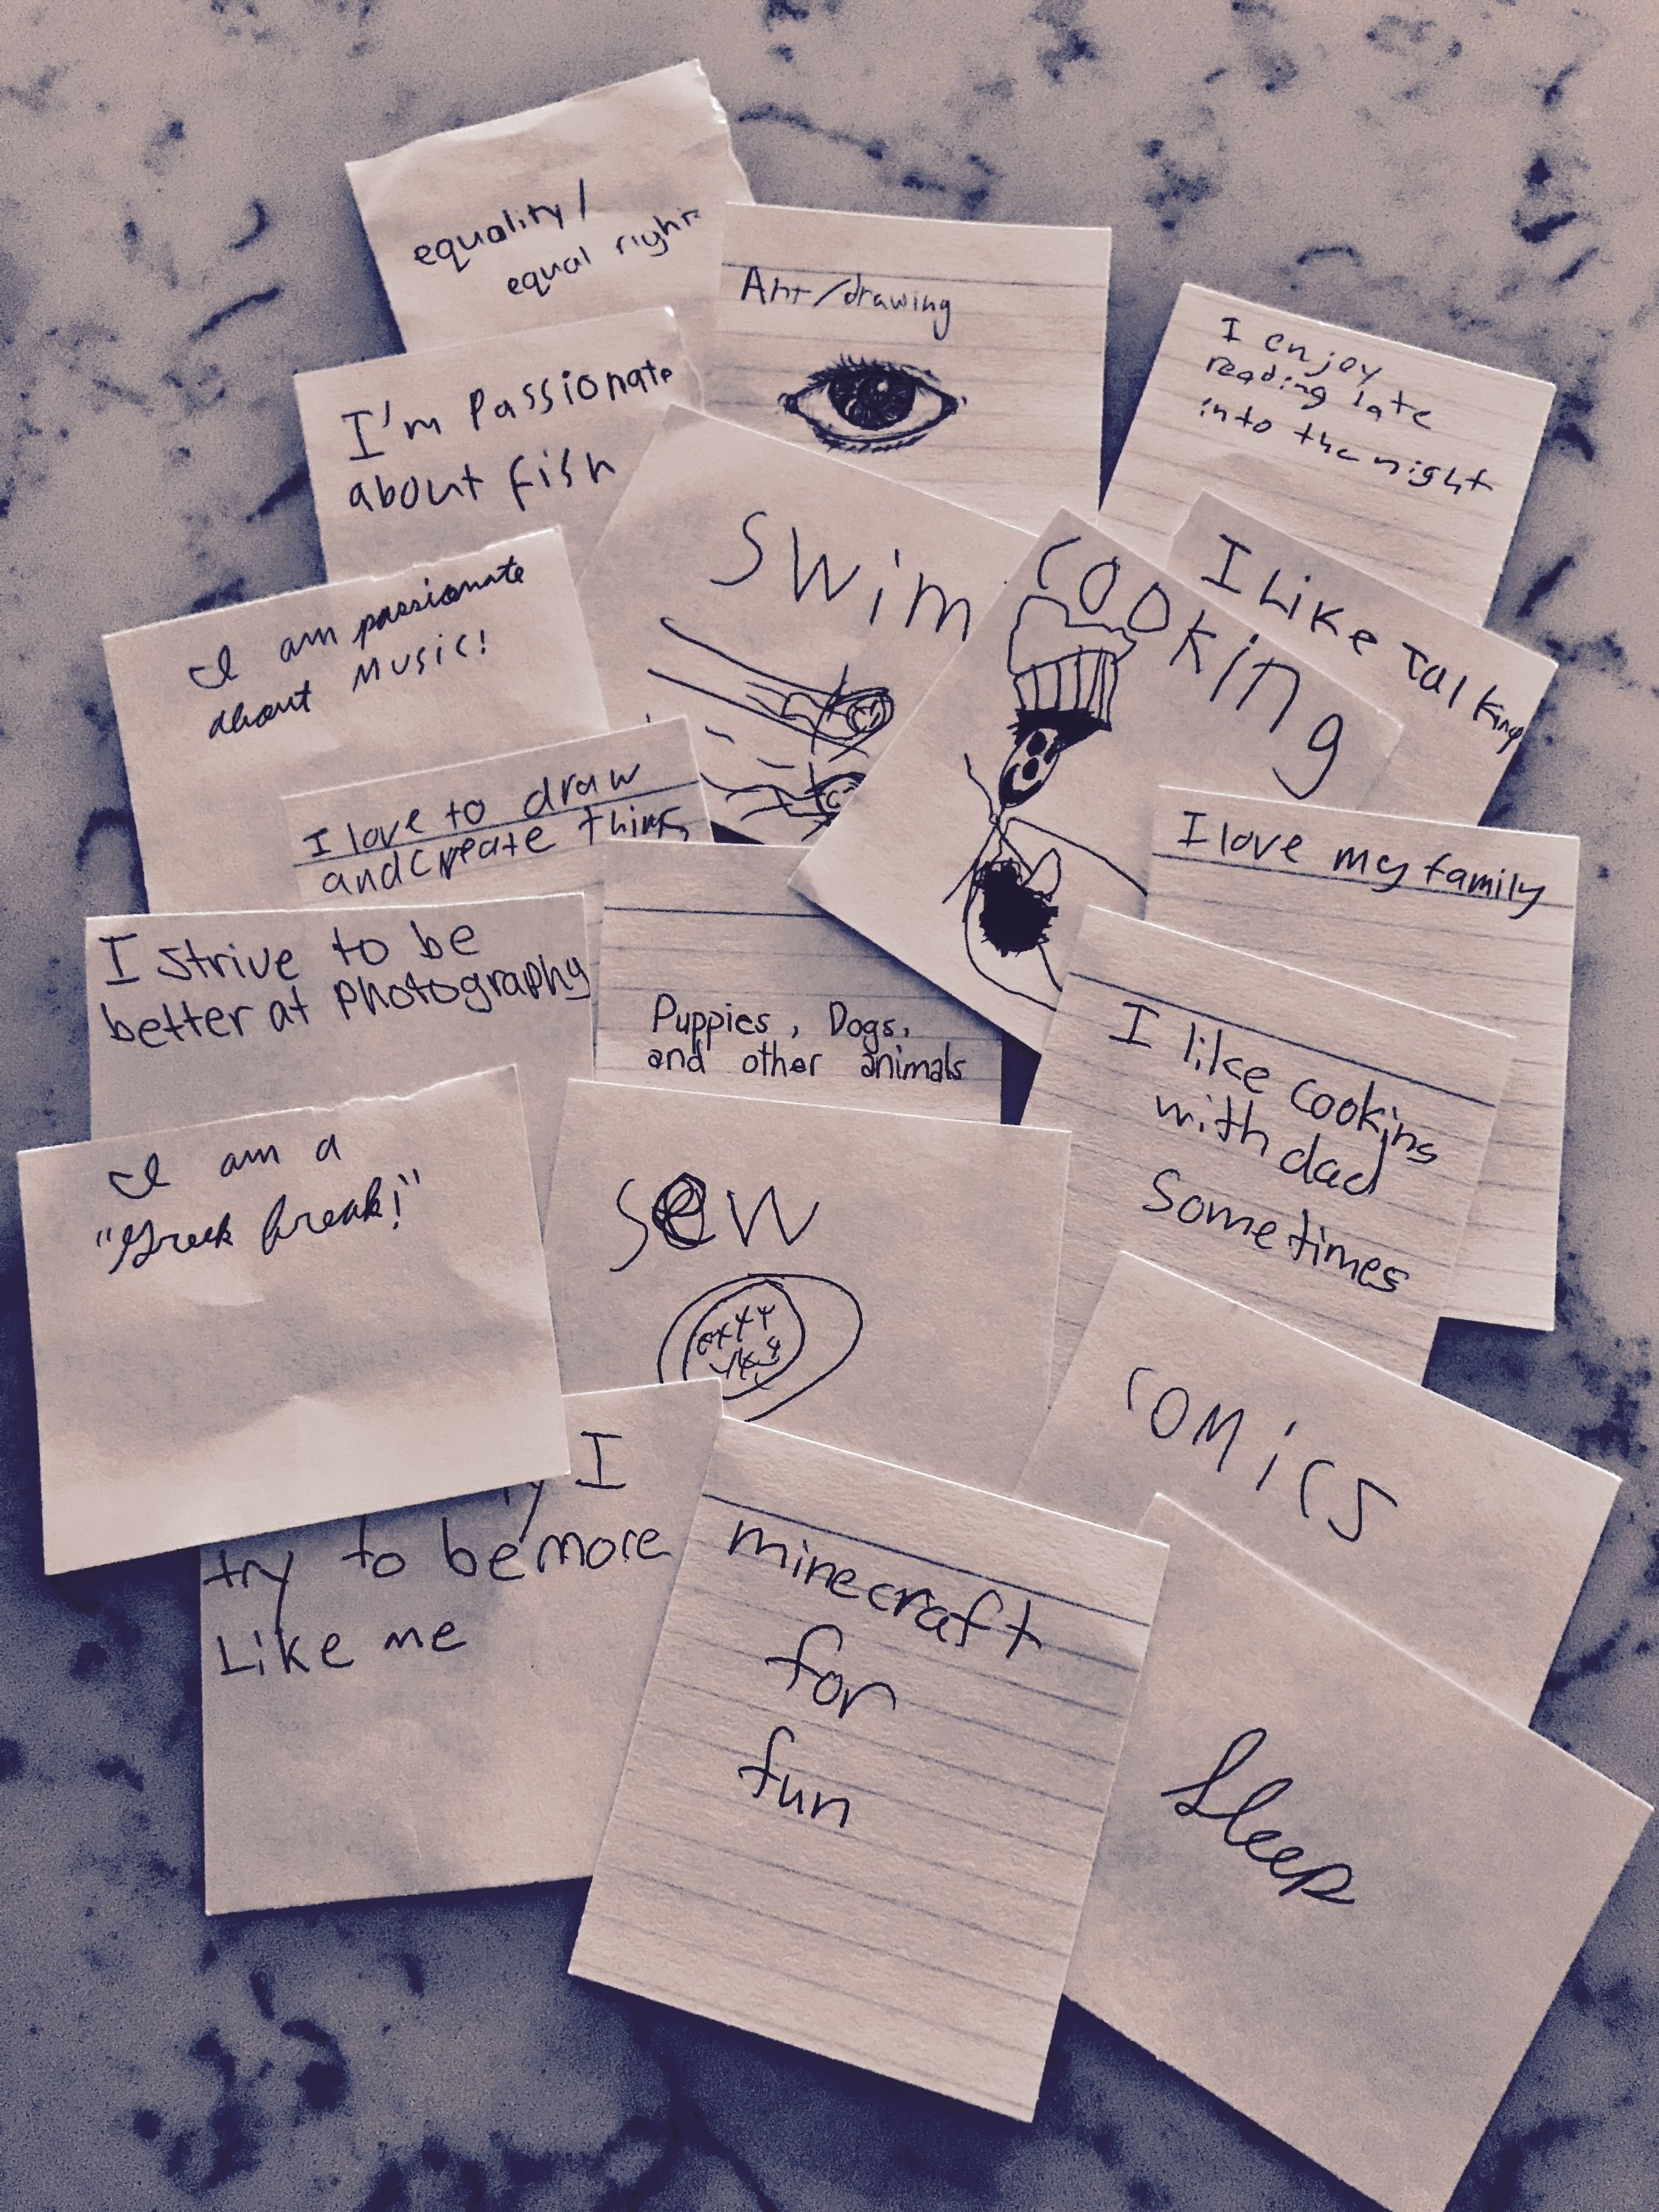 equality/
equal rights
Art/drawing
I enjoy
reading late
into the night
I'm Passionate
about fish
Swim
cooking
I Like Talking
I am passionate
about Music!
I love to draw
and create things
I love my family
I strive to be
better at photography
Puppies, Dogs,
and other animals
I like cooking
with dad
Sometimes
I am a
"Greek freak!"
sew
comics
I
try to be more
Like me
minecraft
for
fun
Sleep